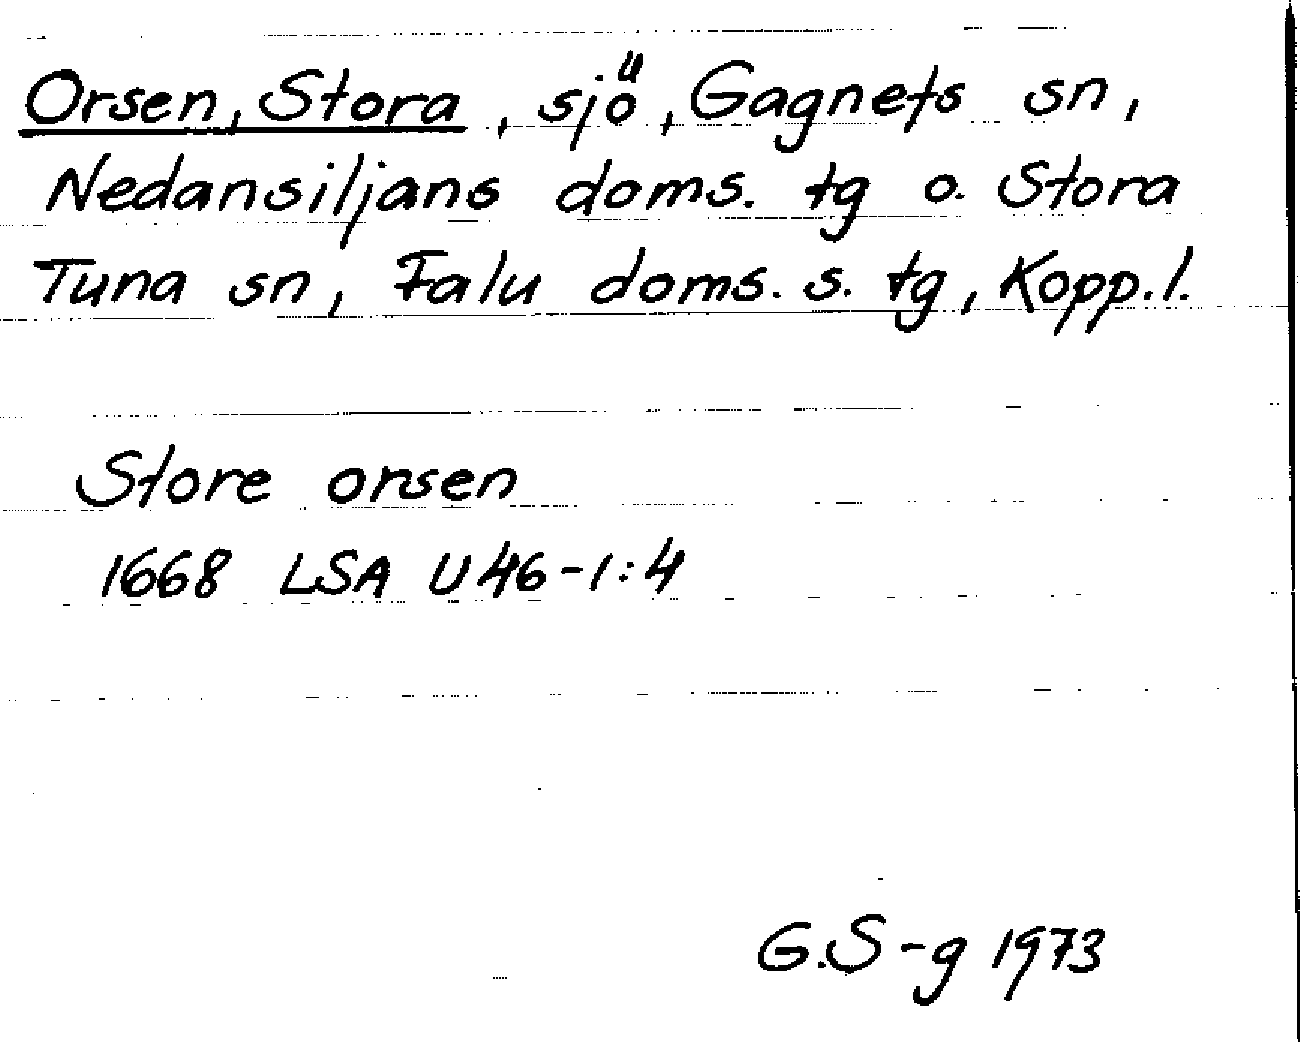 Orsen, Stora, sjö, Gagnefs sn,
Nedansiljans doms. tg o. Stora
Tuna sn, Falu doms. s. tg, Kopp. l.
Store orsen
1668 LSA U46-1:4
G.S-g 1973